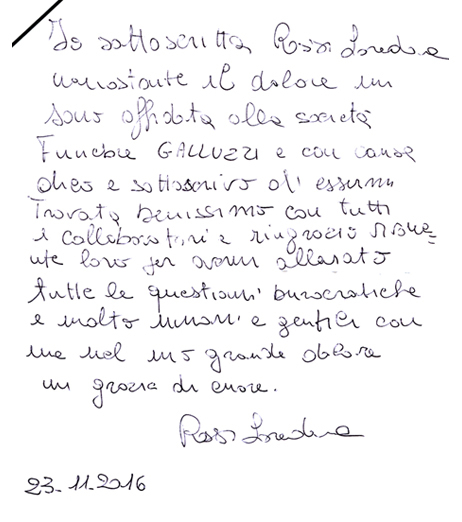 Io sottoscritta Rossi Loredana
nonostante il dolore mi
sono affidata alla società
Funebre GALLUZZI e con
dico e sottoscrivo di essermi
Trovata benissimo con tutti
i collaboratori e ringrazio
loro per avermi
tutte le questioni burocratiche
e molto umani e gentili con
me nel mio grande dolore
un grazie di cuore.
Rossi Loredana
23.11.2016